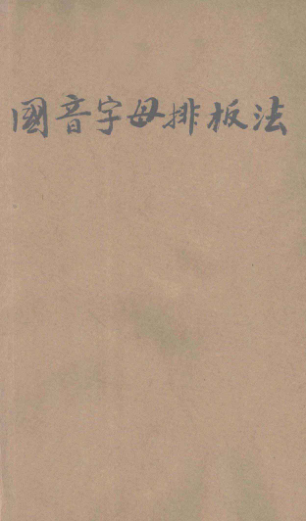 國音字母排板法